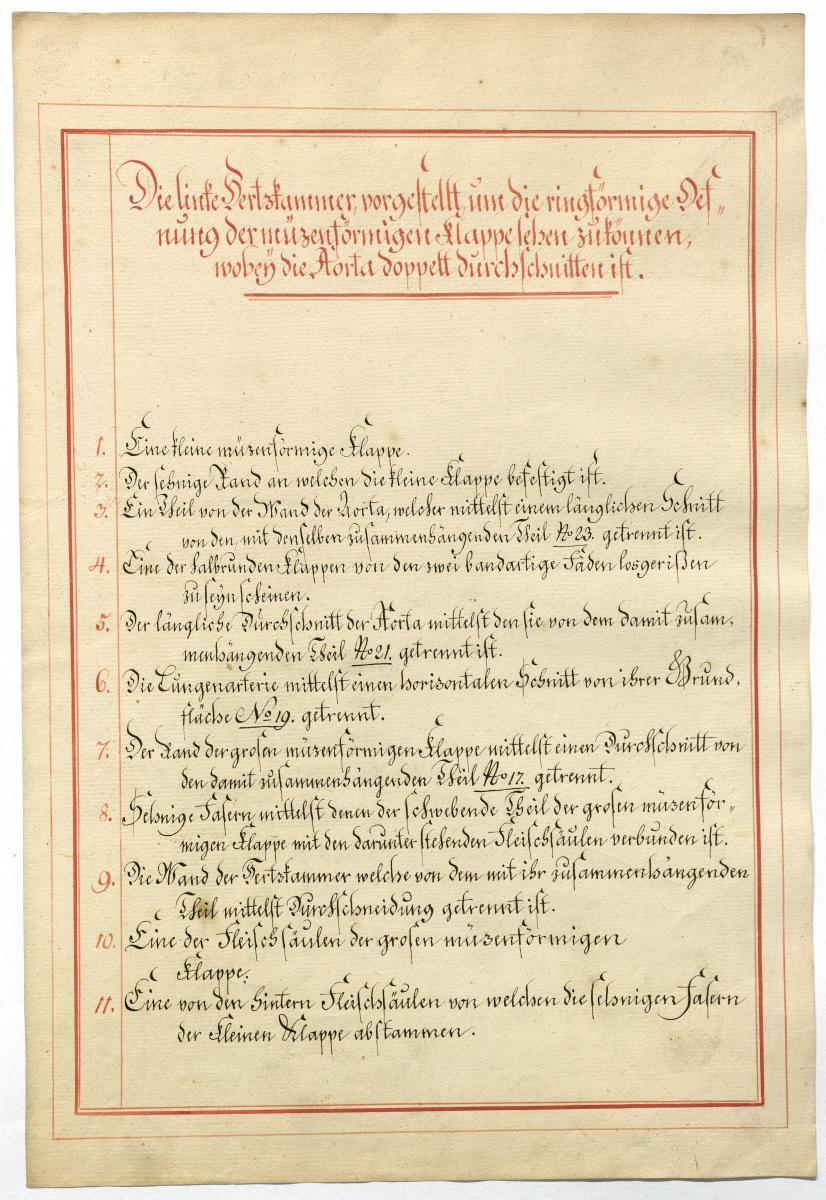 Die linke Hertzkammer, vorgestellt, um die ringförmige Oef„
nung der müzenförmigen Klappe sehen zu können,
wobey die Aorta doppelt durchschnitten ist.
1. Eine kleine müzenförmige Klappe.
2. Der sehnige Rand an welchen die kleine Klappe befestigt ist.
3. Ein Theil von der Wand der Aorta, welcher mittelst einem länglichen Schnitt
von den, mit denselben zusammenhängenden Theil No 23. getrennt ist.
4. Eine der halbrunden Klappen von den zwei bandartige Fäden losgerißen
zu seyn scheinen.
5. Der längliche Durchschnitt der Aorta mittelst den sie von dem damit zusam„
menhängenden Theil No 21. getrennt ist.
6. Die Lungenarterie mittelst einen horizontalen Schnitt von ihrer Grund„
fläche No 19. getrennt.
7. Der Rand der grosen müzenförmigen Klappe mittelst einen Durchschnitt von
den damit zusammenhängenden Theil No 17. getrennt.
8. Sehnige Fasern mittelst denen der schwebende Theil der grosen müzenför„
migen Klappe mit den darunter stehenden Fleischsäulen verbunden ist.
9. Die Wand der Hertzkammer welche von dem mit ihr zusammenhängenden
Theil mittelst Durchschneidung getrennt ist.
10. Eine der Fleischsäulen der grosen müzenförmigen
Klappe.
11. Eine von den hintern Fleischsäulen von welchen die sehnigen Fasern
der kleinen Klappe abstammen.